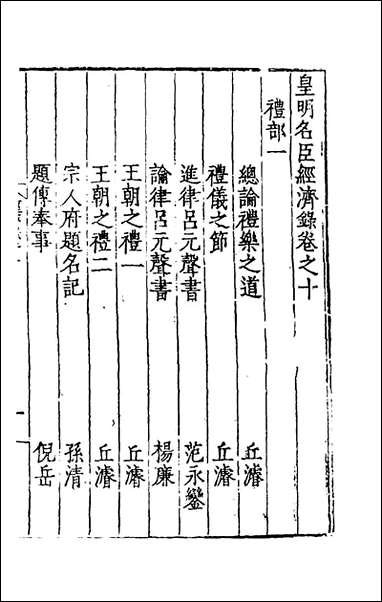 皇明名臣經濟錄卷之十
禮部一
總論禮樂之道 丘濬
禮儀之節 丘濬
進律呂元聲書 范永鑾
論律呂元聲書 楊廉
王朝之禮一 丘濬
王朝之禮二 丘濬
宗人府題名記 孫清
題傳奉事 倪岳